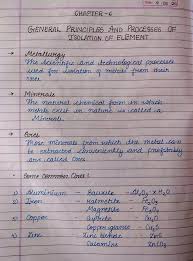 CHAPTER-6
GENERAL PRINCIPLES AND PROCESSES OF
ISOLATION OF ELEMENT
→ Metallurgy
The scientific and technological processes
used for isolation of metals from their
ores.
→ Minerals
The natural chemical form in which
metals exist in nature is called a
Minerals.
→ Ores
Those minerals from which the metal can
be extracted economically and profitably
are called ores.
→ Some Common Ores :
1) Aluminium - Bauxite - Al₂O₃·xH₂O
2) Iron - Haematite - Fe₂O₃
Magnetite - Fe₃O₄
3) Copper - Cuprite - Cu₂O
Copper glance - Cu₂S
4) Zinc - Zinc blende - ZnS
Calamine - ZnCO₃